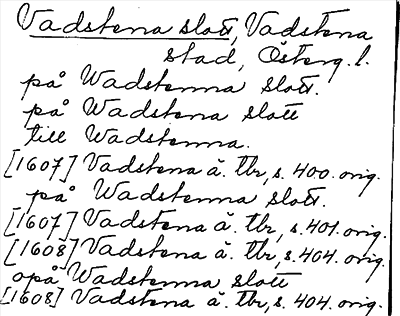 Vadstena slott, Vadstena
stad, Österg. l.
på Wadstenna slott.
på Wadstena slott
till Wadstenna.
[1607] Vadstena ä. tbr, s. 400. orig.
på Wadstenna slott.
[1607] Vadstena ä. tbr, s. 401. orig.
[1608] Vadstena ä. tbr, s. 404. orig.
opå Wadstenna slott
[1608] Vadstena ä. tbr, s. 404. orig.